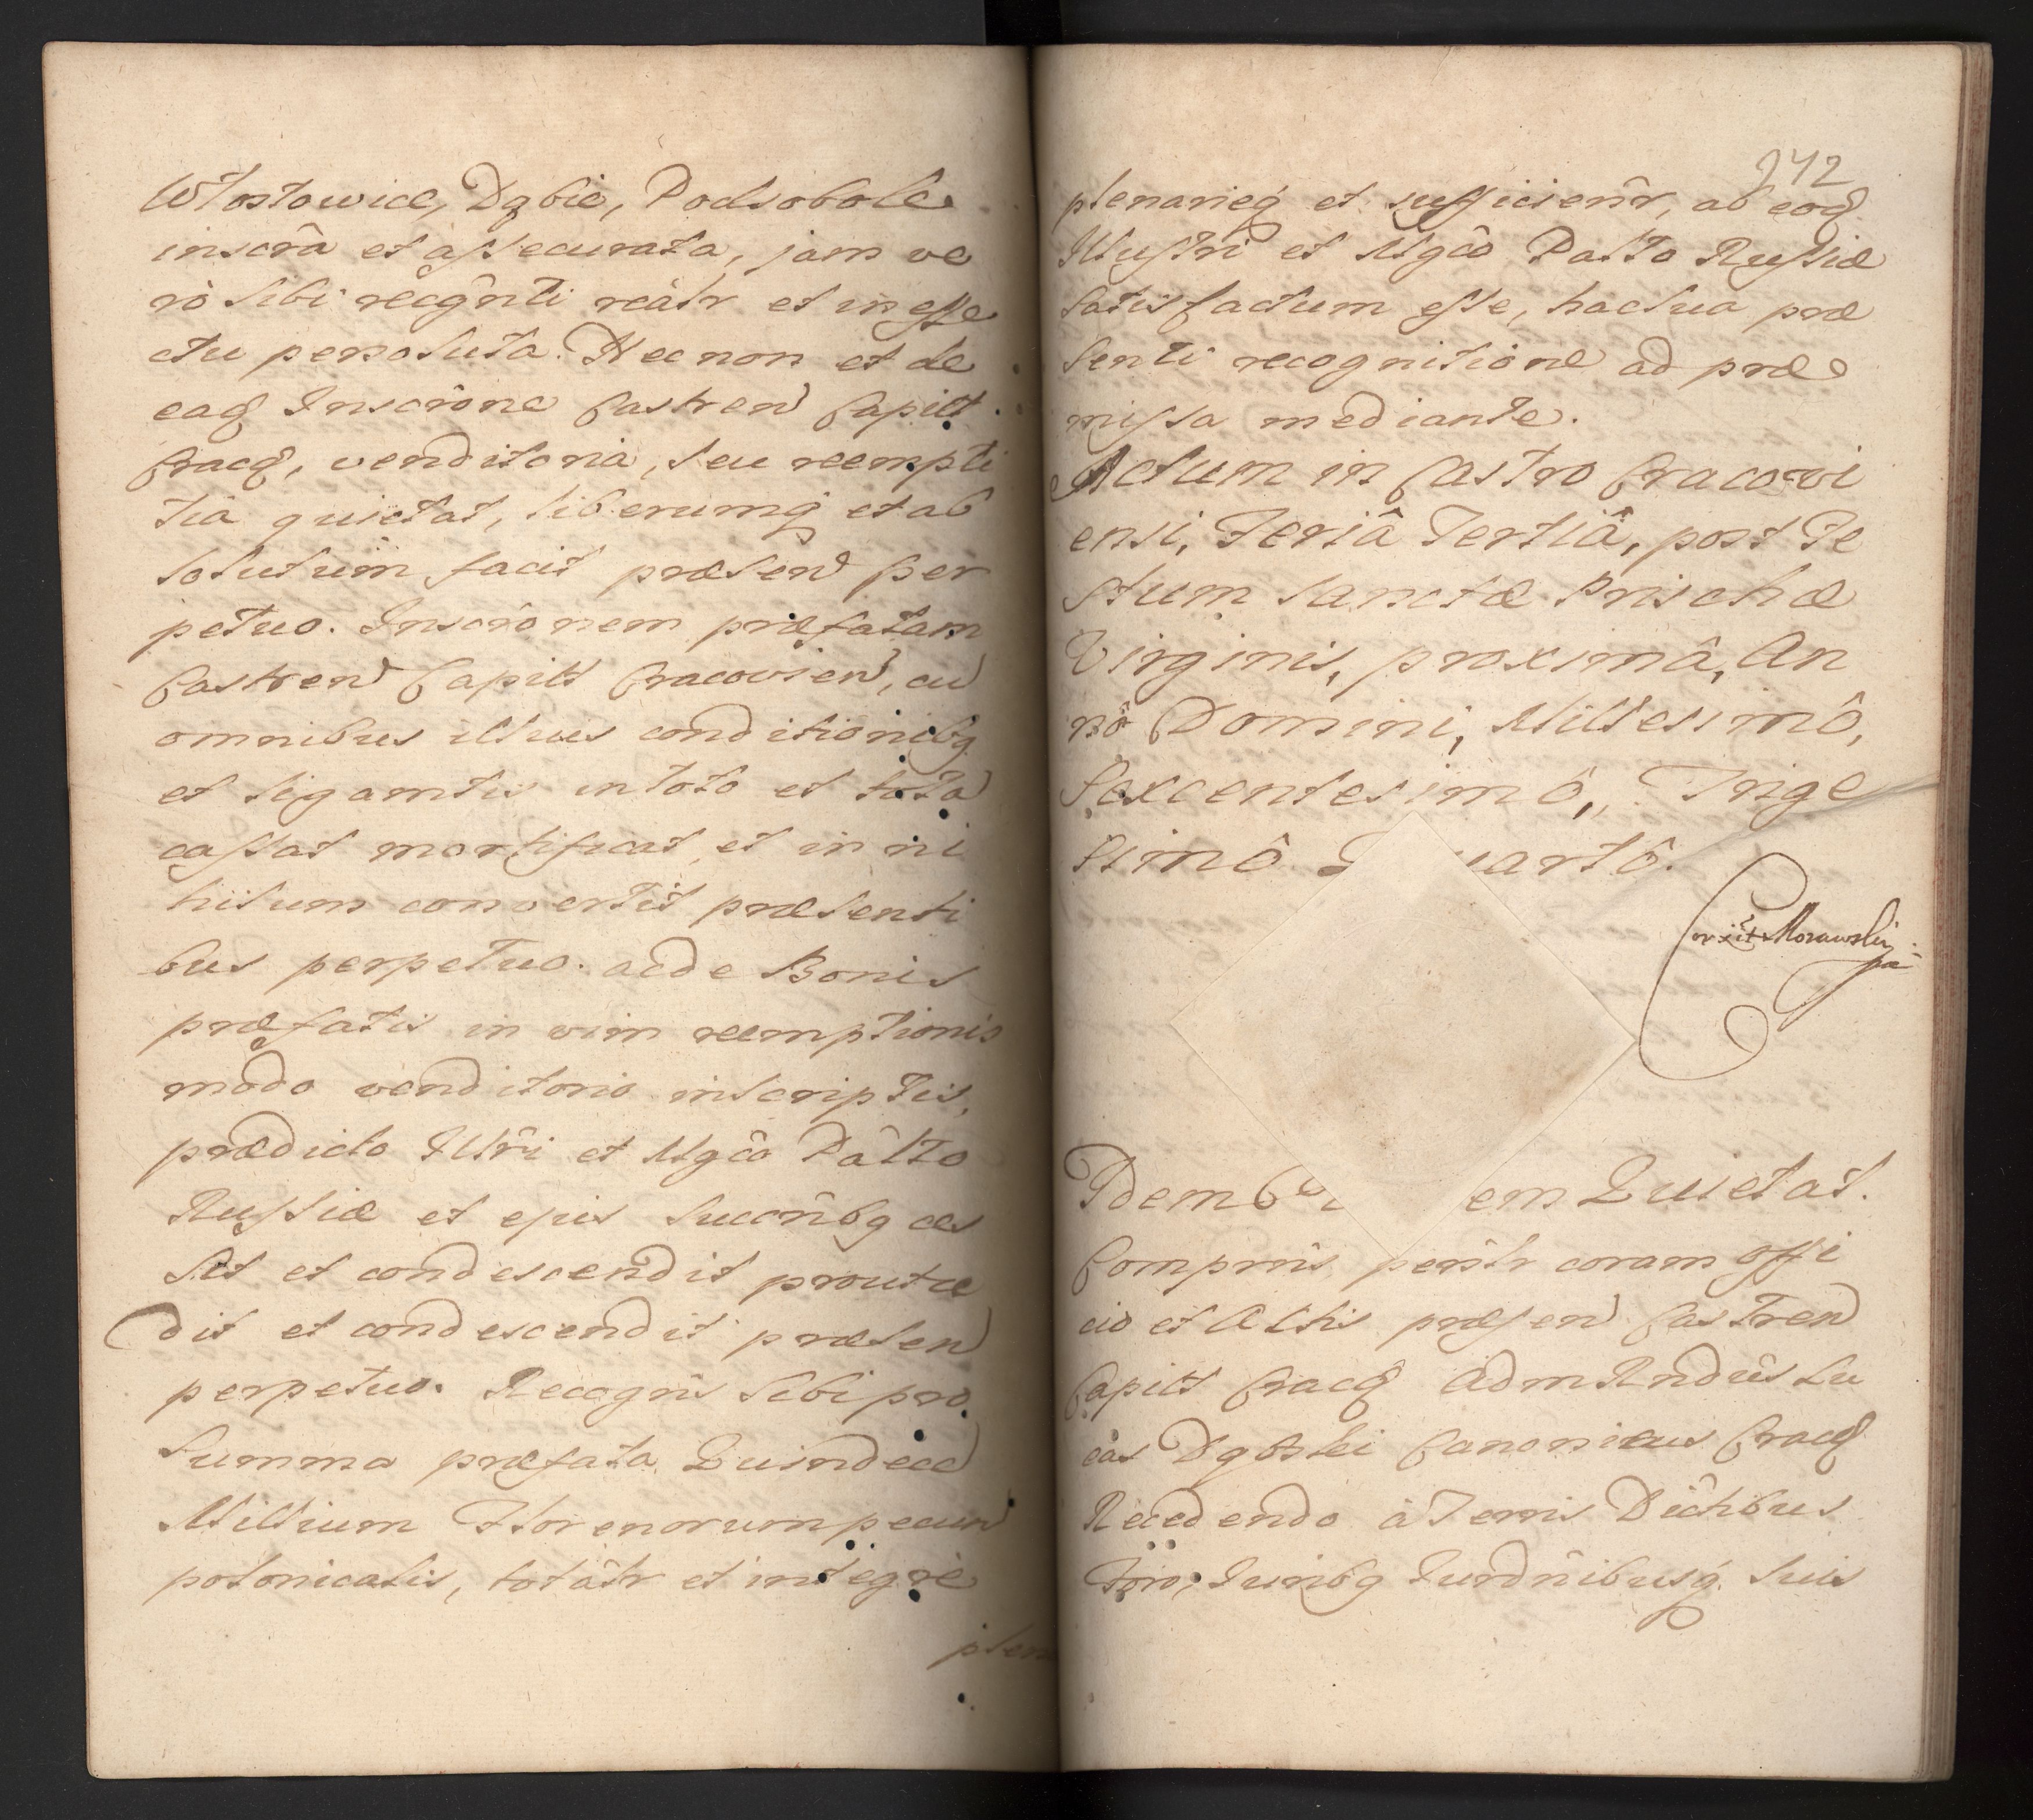 Włostowice, Dąbie, Podsobole
inscrâ et assecurata, jam ve
rò sibi recôgnti reâtr et in effe
ctu persoluta. Nec non et de
eadꝫ Inscrône Castren Capitt
Cracꝫ, venditoria, seu reempti
tia quietat, liberumq et ab
solutum facit præsen per
petuo. Inscrônem præfatam
Castren Capitt Cracovien, cu
omnibus illius conditionibq
et ligamtis in toto et tota
cassat mortificat, et in ni
hilum convertit præsenti
bus perpetuo. ac de Bonis
præfatis in vim reemptionis
modo venditorio inscriptis,
prædicto Illri et Mgco Palto
Russiæ et ejus succribq ces
sit et condescendit prout ce
dit et condescendit præsen
perpetuo. Recogns sibi pro
summa præfata Quindece
Millium Florenorum pecun
polonicalis, totâtr et integrè
plena
242
plenarieq et sufficientr, ab eodꝫ
Illustri et Mgco Palto Russiæ
satisfactum esse, hac sua præ
senti recognitione ad præ
missa mediante.
Actum in Castro Cracovi
ensi, Feriâ Tertiâ, post Fe
stum Sanctæ Prischæ
Virginis, proximâ, An
nô Domini, Millesimô,
Sexcentesimô, Trige
simô Quartô.
Morawski
Idem em Quietat.
Comprns persltr coram offi
cio et Actis præsen Castren
Capitt Cracꝫ Adm Rndus Lu
cas Dąbski Canonicus Cracꝫ
Recedendo à Terris Districtbus
Foro, Juribq Jurdnibusq suis